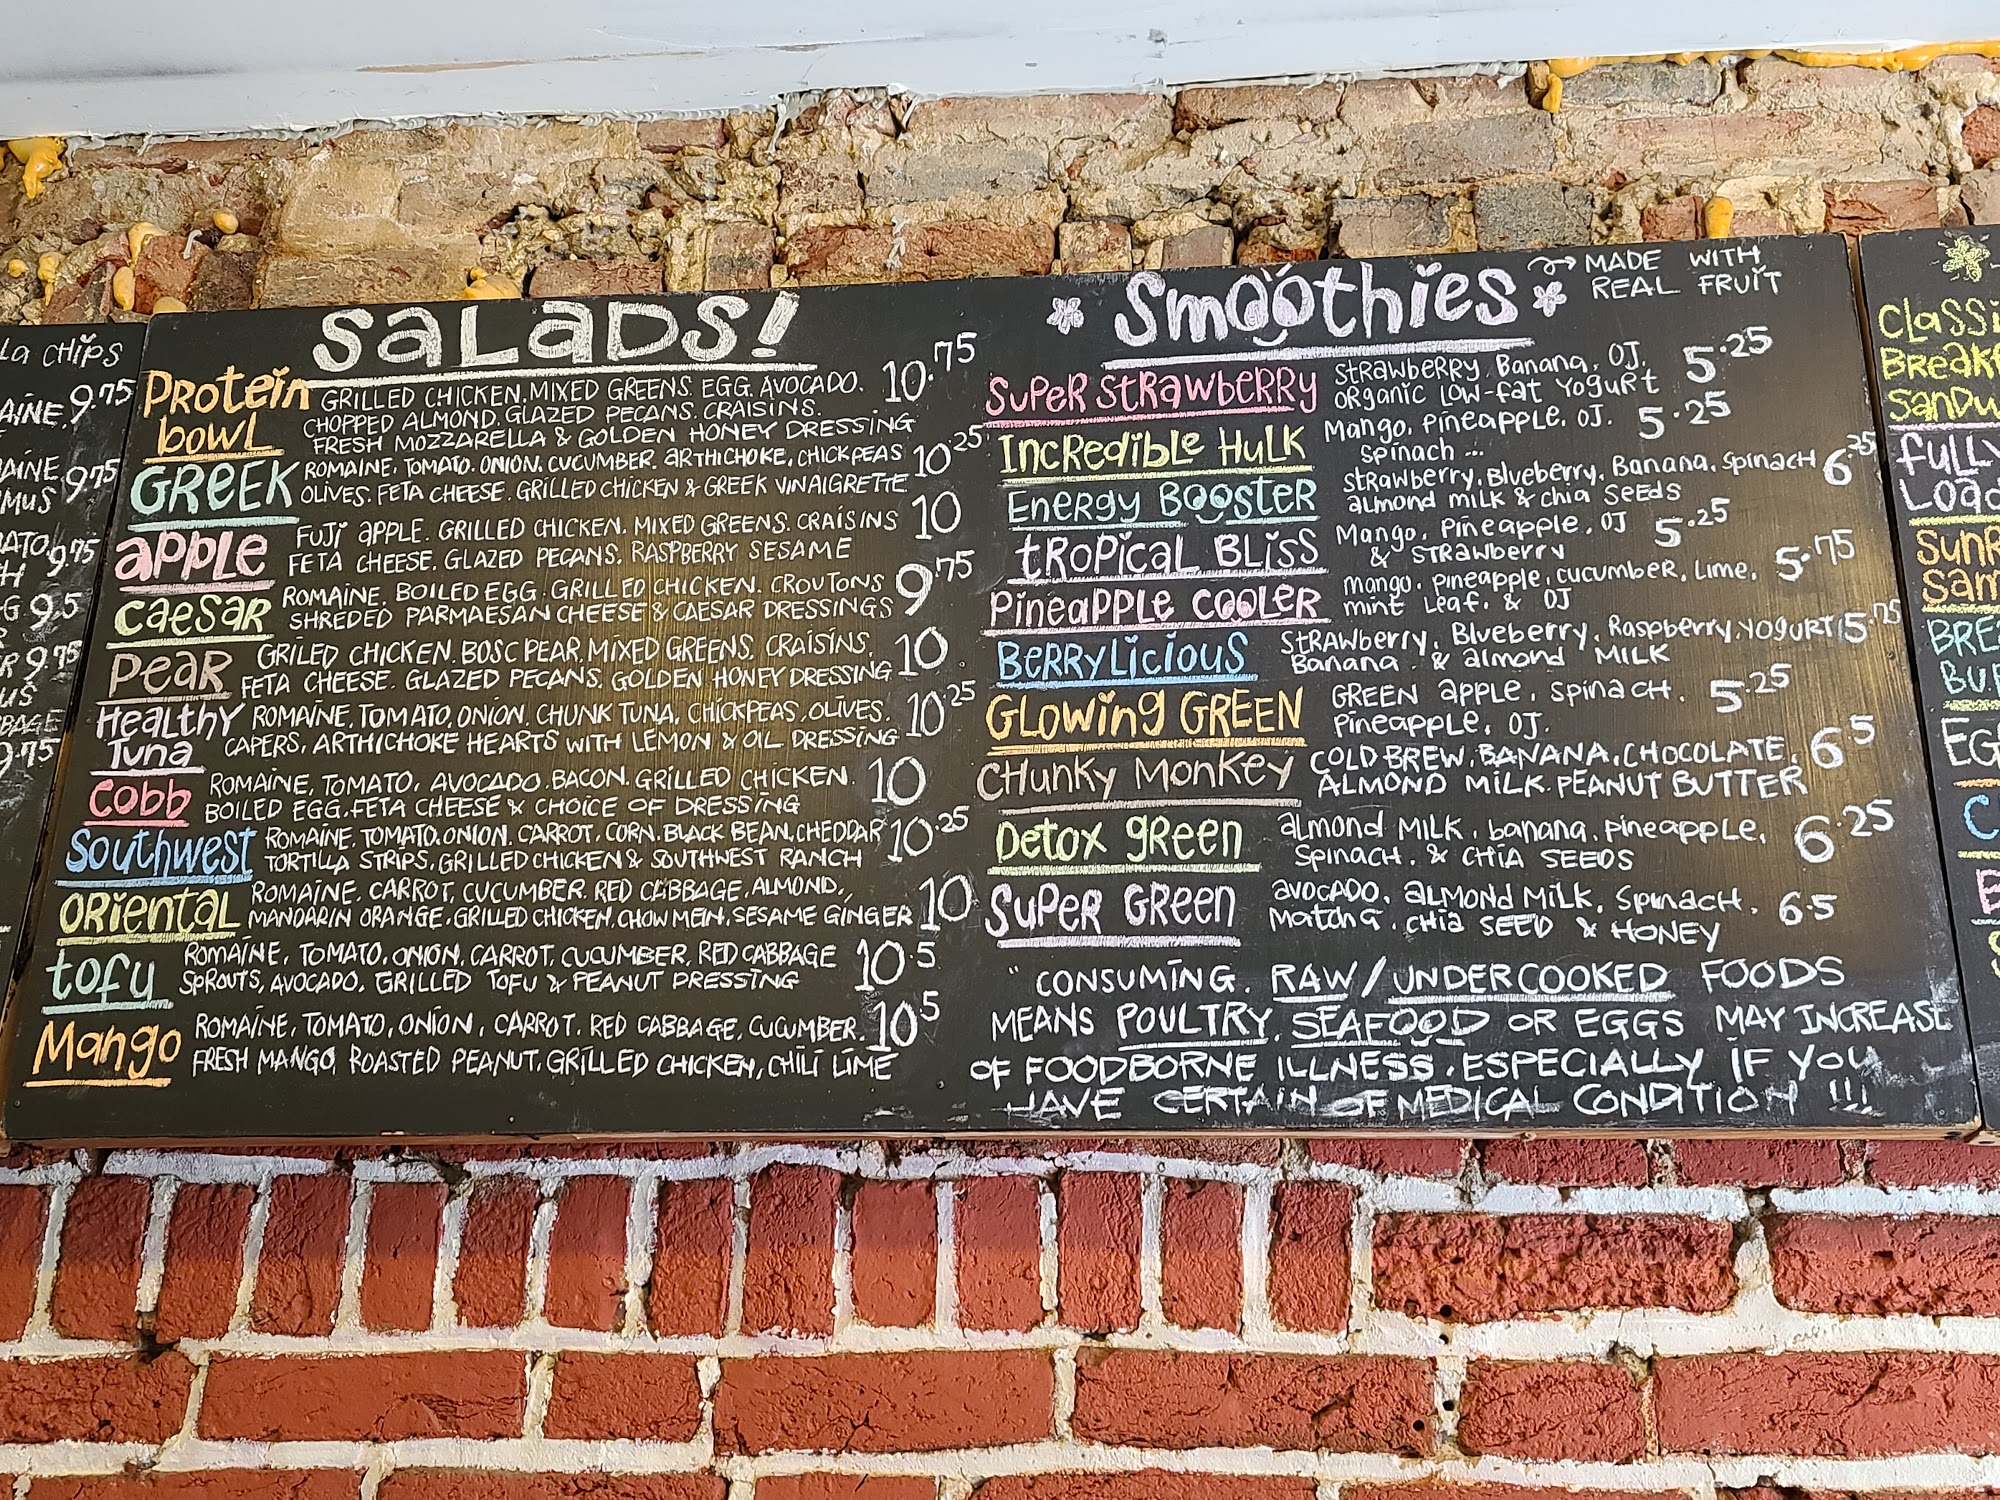 La CHiPS
9.75
9.75
MUS
9.75
9.5
9.75
US
BBAGE
9.75
SaLaDS!
PROtein
bowL
GRILLED CHICKEN. MIXED GREENS. EGG. AVOCADO.
CHOPPED ALMOND. GLAZED PECANS. CRAISINS.
FRESH MOZZARELLA & GOLDEN HONEY DRESSING
10.75
GREEK
ROMAINE, TOMATO. ONION. CUCUMBER. aRTHICHOKE, CHICKPEAS
OLIVES. FETA CHEESE. GRILLED CHICKEN & GREEK VINAIGRETTE
10.25
apple
FUJi aPPLE. GRILLED CHICKEN. MIXED GREENS. CRAISINS
FETA CHEESE. GLAZED PECANS. RASPBERRY SESAME
10
caesaR
ROMAINE. BOILED EGG. GRILLED CHICKEN. CROUTONS
SHREDED PARMAESAN CHEESE & CAESAR DRESSINGS
9.75
PeaR
GRILED CHICKEN. BOSC PEAR. MIXED GREENS. CRAISINS,
FETA CHEESE. GLAZED PECANS. GOLDEN HONEY DRESSING
10
HeaLtHy
Tuna
ROMAINE, TOMATO, ONION. CHUNK TUNA, CHICKPEAS, OLIVES.
CAPERS, ARTHICHOKE HEARTS WITH LEMON & OIL DRESSING
10.25
cobb
ROMAINE, TOMATO, AVOCADO. BACON. GRILLED CHICKEN.
BOILED EGG. FETA CHEESE & CHOICE OF DRESSING
10
Southwest
ROMAINE, TOMATO. ONION. CARROT. CORN. BLACK BEAN. CHEDDAR
TORTILLA STRIPS, GRILLED CHICKEN & SOUTHWEST RANCH
10.25
ORientaL
ROMAINE. CARROT, CUCUMBER. RED CABBAGE. ALMOND,
MANDARIN ORANGE. GRILLED CHICKEN. CHOW MEIN, SESAME GINGER
10
tofu
ROMAINE, TOMATO, ONION, CARROT, CUCUMBER, RED CABBAGE
SPROUTS, AVOCADO, GRILLED TOFU & PEANUT DRESSING
10.5
Mango
ROMAINE, TOMATO, ONION, CARROT. RED CABBAGE, CUCUMBER.
FRESH MANGO, ROASTED PEANUT, GRILLED CHICKEN, CHILI LIME
10.5
Smoothies
MADE WITH
REAL FRUIT
SuPeR StRawbeRRy
StRawbeRRy, Banana, OJ.
ORganic Low-fat YoguRt
5.25
IncRedibLe HuLK
Mango, Pineapple, OJ.
Spinach ...
5.25
EneRgy BooSteR
StRawbeRRy, BLuebeRRy, Banana, SpinacH
aLmond miLK & chia SeedS
6.25
tROPicaL BLiSS
Mango, Pineapple, OJ
& StRawbeRRy
5.25
PineaPPLe cooLeR
mango, Pineapple, cucumbeR, Lime,
mint Leaf, & OJ
5.75
BeRRyLiciouS
StRawbeRRy, BLuebeRRy, RaspbeRRy, YoguRt
Banana & almond MILK
5.75
GLowing GREEN
GREEN apple, spinacH.
Pineapple, OJ.
5.25
CHunKy MonKey
COLD BREW, BANANA, CHOCOLATE,
ALMOND MILK. PEANUT BUTTER
6.5
Detox gReen
almond MILK, banana, Pineapple,
Spinach, & CHIA SEEDS
6.25
SuPeR GReen
avocado, almond MiLK, Spinach,
Matcha, CHia SEED & HONEY
6.5
" CONSUMING. RAW / UNDERCOOKED FOODS
MEANS POULTRY, SEAFOOD OR EGGS MAY INCREASE
OF FOODBORNE ILLNESS, ESPECIALLY IF YOU
HAVE CERTAIN OF MEDICAL CONDITION !!!
BREaK
fuLLy
Load